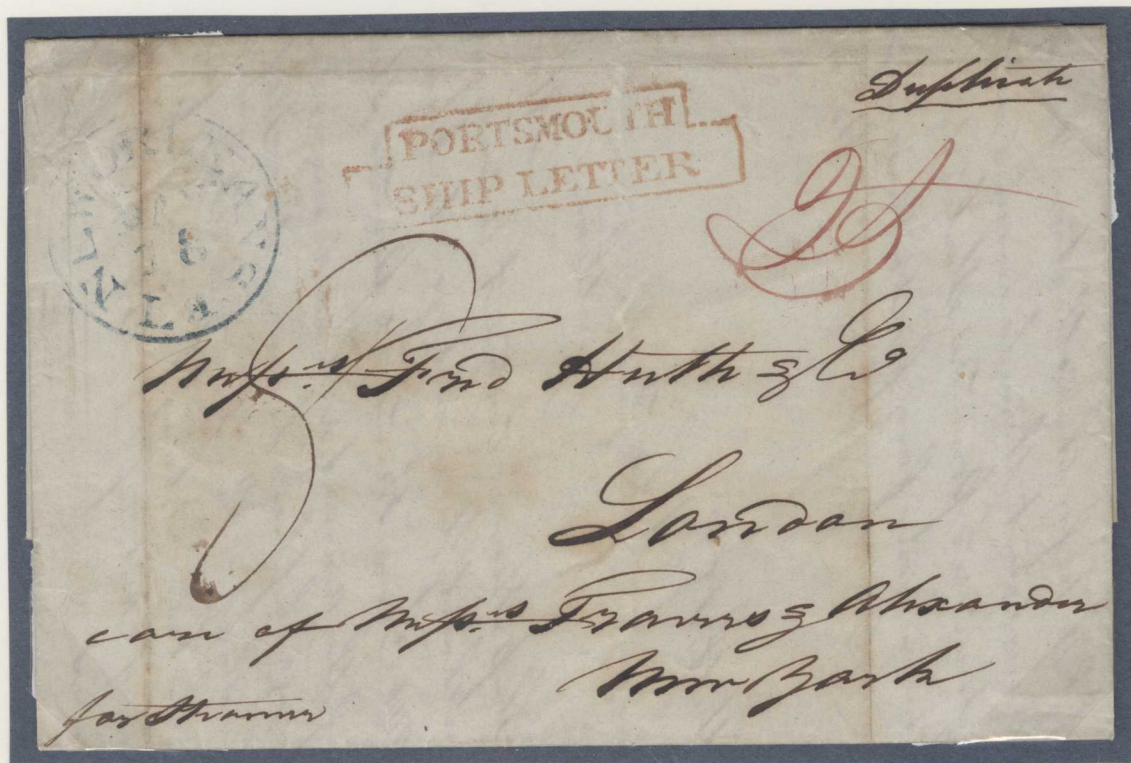 Duplicate
PORTSMOUTH
SHIP LETTER
NEW ORLEANS LA
18
Mess.rs Fred Huth & Co
London
care of Mess.rs Travers & Alexander
New York
for Steamer